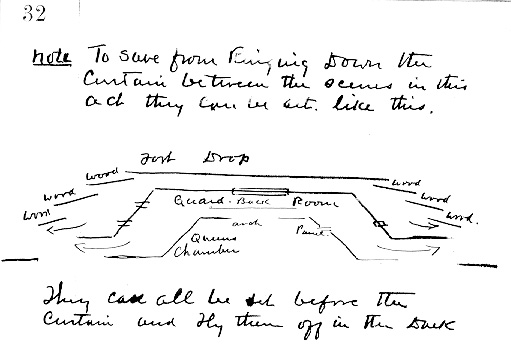 32
Note To save from Ringing Down the
Curtain between the scenes in this
act they can be set. like this.
Fort Drop
wood wood
wood wood
wood wood.
Guard - Back Room
arch
Queens Panel
Chamber
They can all be set before the
Curtain and Fly them off in the Dark